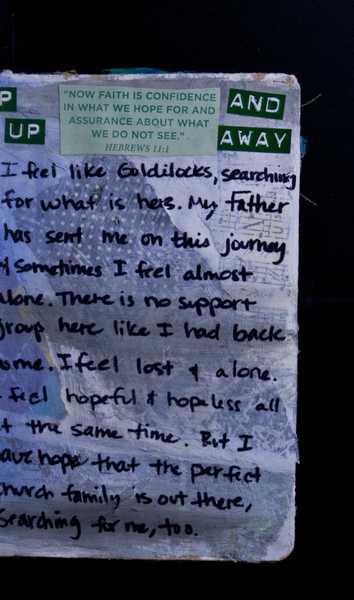 P
UP
"NOW FAITH IS CONFIDENCE
IN WHAT WE HOPE FOR AND
ASSURANCE ABOUT WHAT
WE DO NOT SEE."
HEBREWS 11:1
AND
AWAY
I feel like Goldilocks, searching
for what is hers. My Father
has sent me on this journey
& sometimes I feel almost
alone. There is no support
group here like I had back
home. I feel lost & alone.
feel hopeful & hopeless all
at the same time. But I
have hope that the perfect
church family is out there,
searching for me, too.